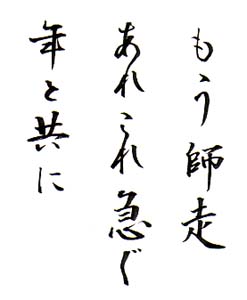 もう師走
あれこれ急ぐ
年と共に